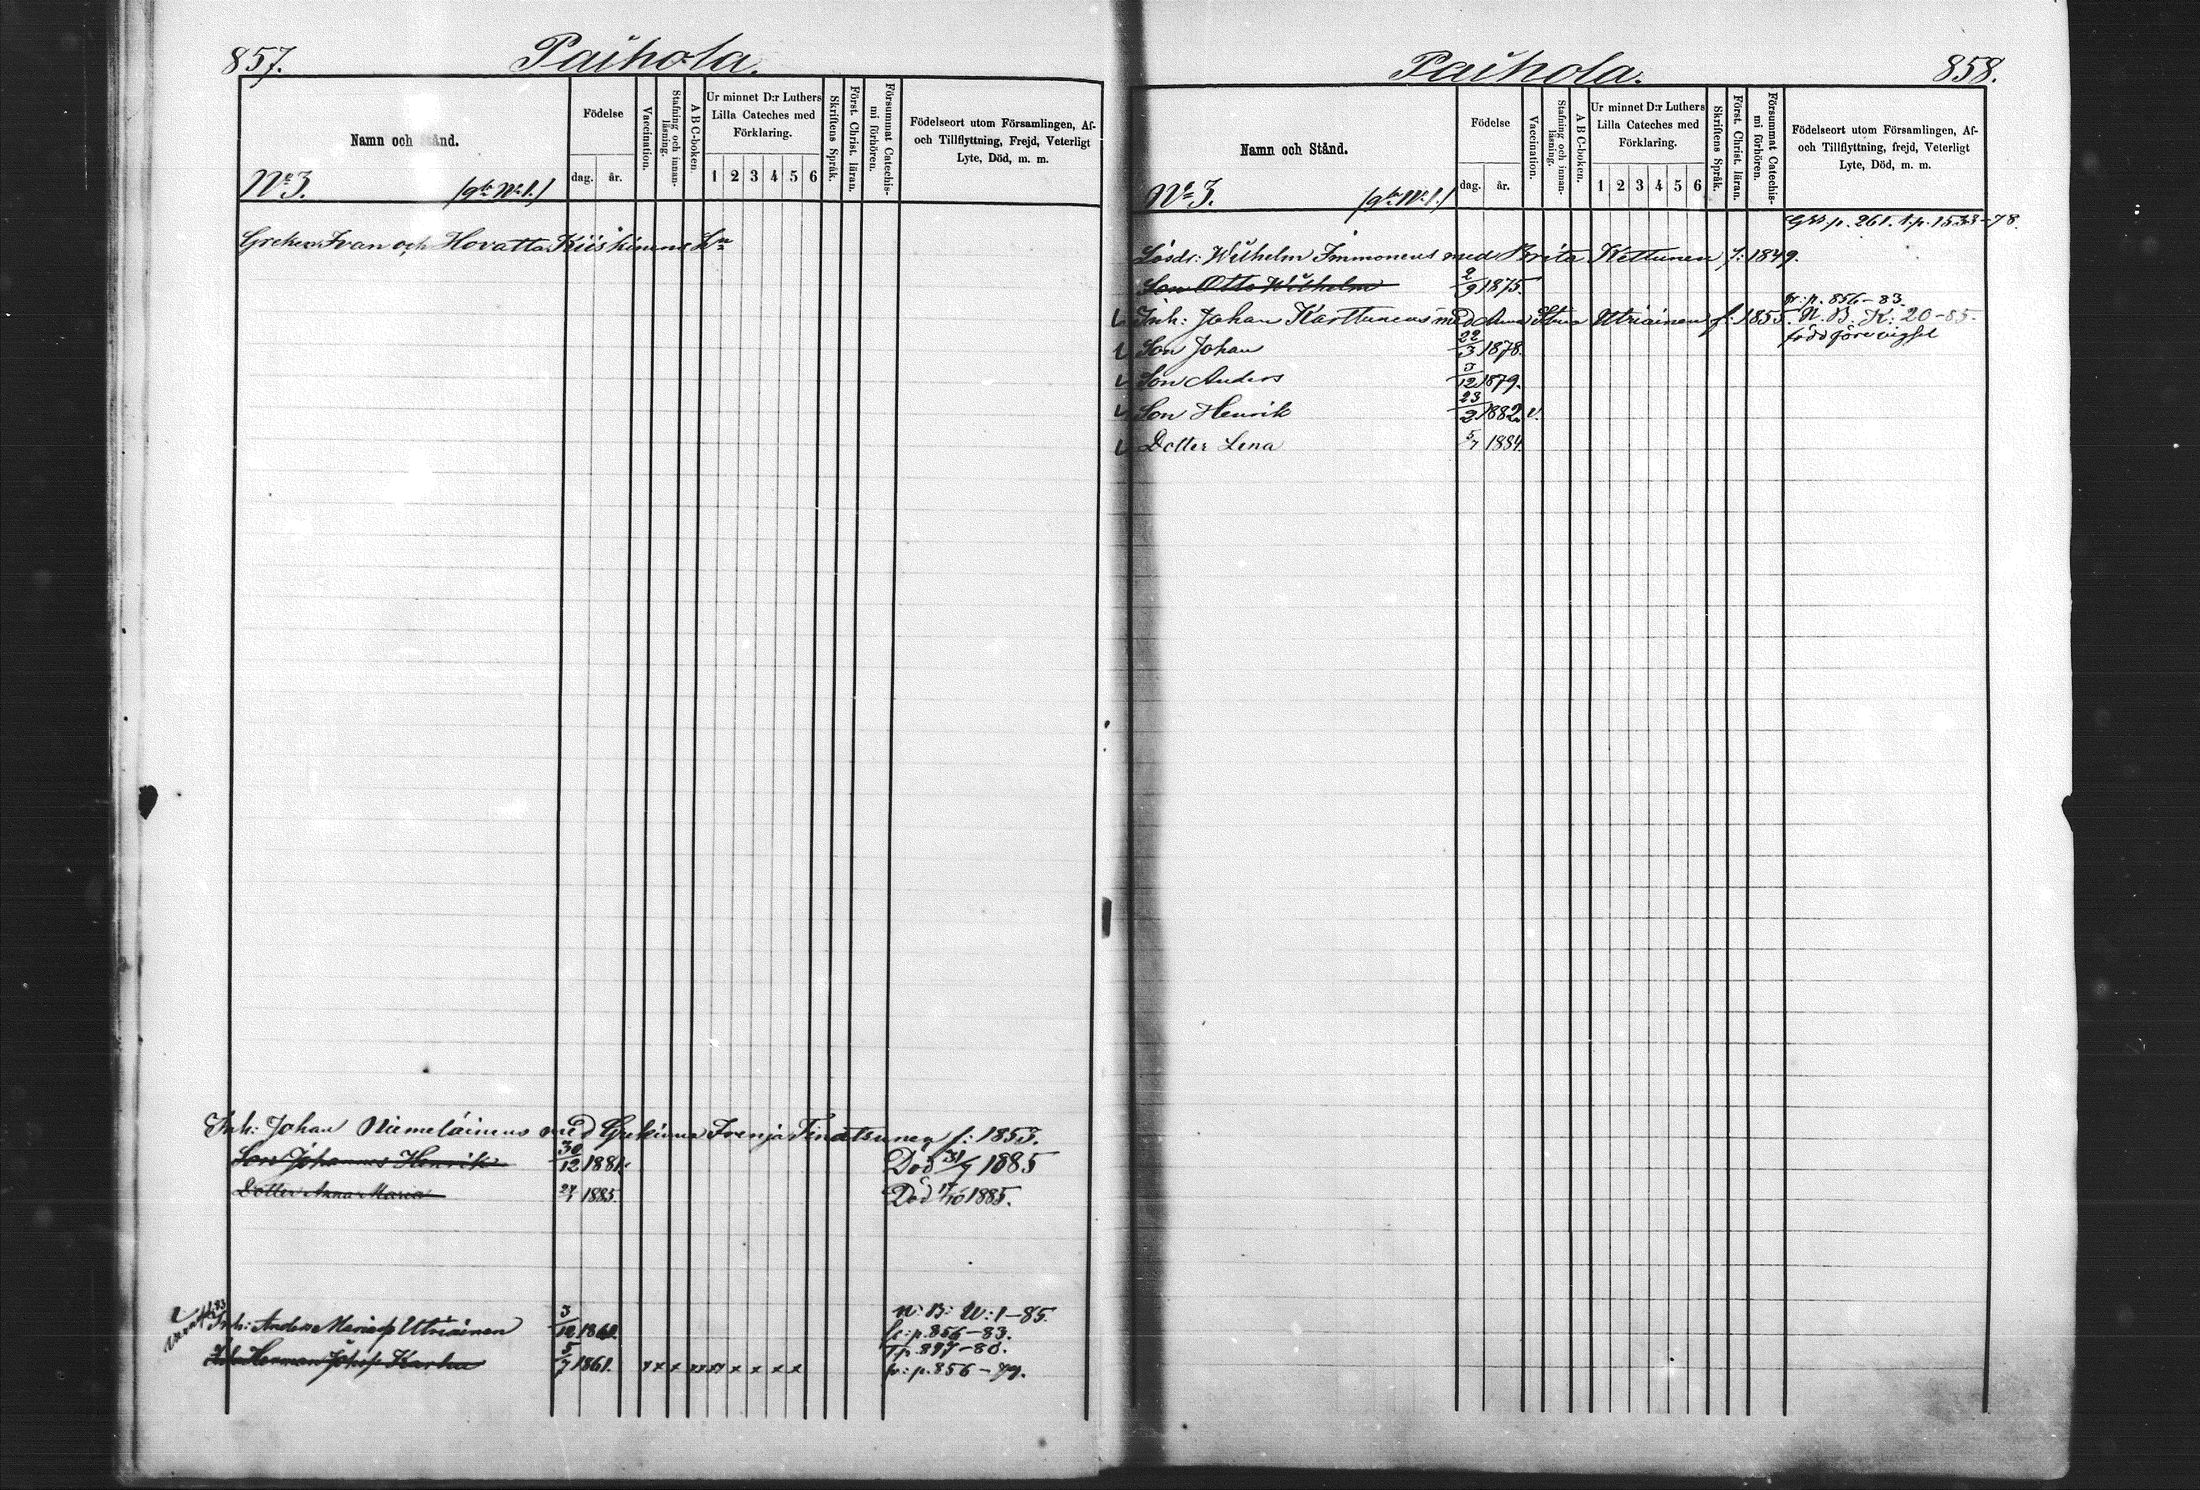 857.
Paihola.
Namn och Stånd.
Födelse
dag. år.
Vaccination.
Stafning och innan-läsning.
A B C-boken
Ur minnet D:r Luthers
Lilla Cateches med
Förklaring.
1 2 3 4 5 6
Skriftens Språk.
Först. Christ. läran.
Försummat Catechis-mi förhören.
Födelseort utom Församlingen, Af-
och Tillflyttning, Frejd, Veterligt
Lyte, Död, m. m.
No 3. (gb No 1.)
Greker Ivan och Hovatta Kiiskinens
Inh: Johan Niemeläinens med Grekinna Irenja f: 1853.
Son Johannes Henrik 30/12 1881. Död 31/7 1885
Dotter Anna Maria 1885. Död 17/10 1885.
N: B: U: 1-85.
Inh: Anders Utriainen 3/12 1860. fr: p. 856-83.
T p. 897-80.
Inh: Herman Karhu 5/7 1861. x x x x x x x fr: p. 856-79.
Paihola.
858.
Namn och Stånd.
Födelse
dag. år.
Vaccination.
Stafning och innan-läsning.
A B C-boken.
Ur minnet D:r Luthers
Lilla Cateches med
Förklaring.
1 2 3 4 5 6
Skriftens Språk.
Först. Christ. läran.
Försummat Catechis-mi förhören.
Födelseort utom Församlingen, Af-
och Tillflyttning, frejd, Veterligt
Lyte, Död, m. m.
No 3. (gb No 1.)
p. 261. t p. 1533-78.
Lösdr: Wilhelm Immonens med Brita Kettunen f: 1849.
Son Otto Wilhelm 2/9 1875.
fr: p. 856-83.
Inh: Johan Karttunens med Anna Stina Utriainen f: 1855. N. B. K: 20-85.
Son Johan 22/3 1878. född före vigsel
Son Anders 3/12 1879.
Son Henrik 23/2 1882. v.
Dotter Lena 5/7 1884.